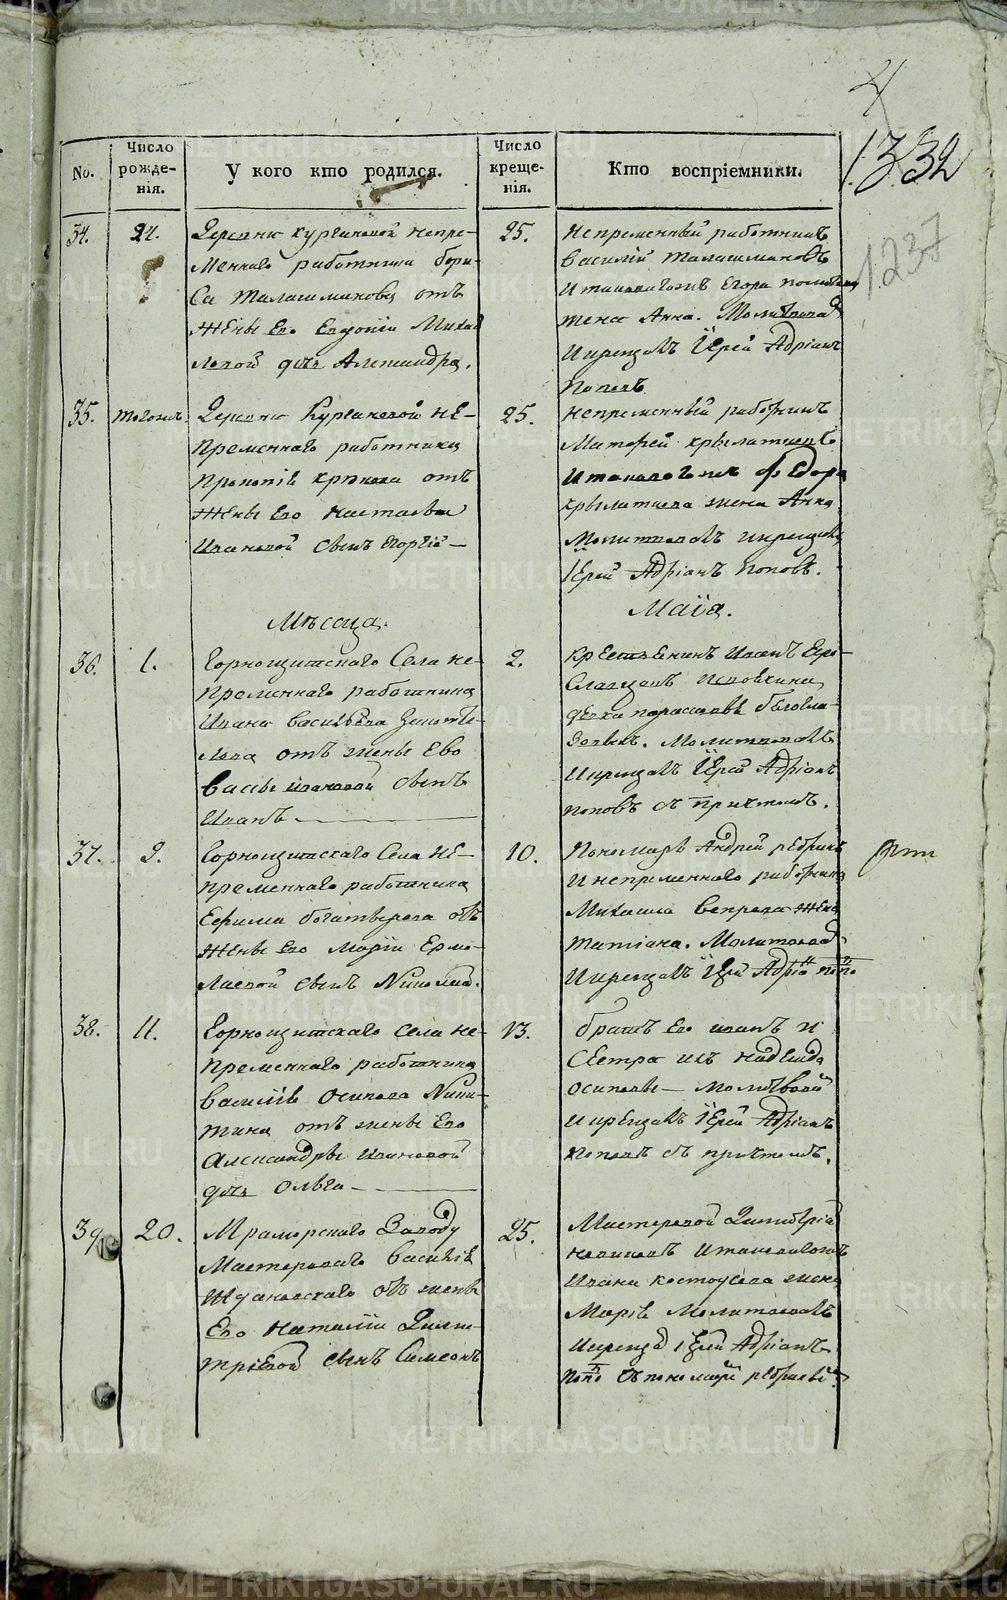 METRIKI.GASO-URAL.RU
1332
1237
No.
Число рожденія.
У кого кто родился.
Число крещенія.
Кто воспріемники.
34.
24.
Деревни Кургановой непре-
меннаго работника Бори-
са Талашманова отъ
жены Его Евдокіи Михай
ловой дочь Александра.
25.
Непременный работникъ
Василій Талашмановъ
Итакова
жена Анна. Молитвовад
Икрещалъ Іерей Адріанъ
Поповъ
35.
тогожъ
Деревни Кургановой не-
пременнаго работника
Прокопія отъ
жены Его Настасьи
Ивановой сынъ Егоргій —
25.
Непременный работникъ
Матфей Крылатковъ
Итаковагожъ Федора
Крылаткова жена Анна
Молитвовалъ икрещалъ
Іерей Адріанъ Поповъ.
Месяца.
Маія.
36.
1.
Горнощитскаго Села не-
пременнаго работника
Ивана Васильева
отъ жены Ево
Васы Ивановой сынъ
Иванъ —
2.
Крестьянинъ Иванъ
девка Парасковья
Молитвовалъ
Икрещалъ Іерей Адріанъ
Поповъ съ Притчомъ.
37.
9.
Горнощитскаго Села не-
пременнаго работника
Ефима Богатырева отъ
жены Его Маріи Ермо-
лаевой сынъ Николай.
10.
Пономарь Андрей
И непременнаго работника
Михаила Вепрева жена
Татіана. Молитвовад
Икрещалъ Іерей Адріанъ Попо
38.
11.
Горнощитскаго села не-
пременнаго работника
Василія Осипова Ники-
тина отъ жены Его
Александры Ивановой
дочь Ольга —
13.
братъ Его Иванъ И
Сестра ихъ Надежда
Осиповы — Молитвовалъ
Икрещалъ Іерей Адріанъ
Поповъ съ притчомъ.
39.
20.
Мраморскаго Заводу
Мастероваго Василія
отъ жены
Его Наталіи Дими-
тріевой сынъ Симеонъ
25.
Мастеровой Димитрій
Итаковагожъ
Ивана Костоусова жена
Марія Молитвовалъ
Икрещалъ Іерей Адріанъ
Попо съ пономаремъ